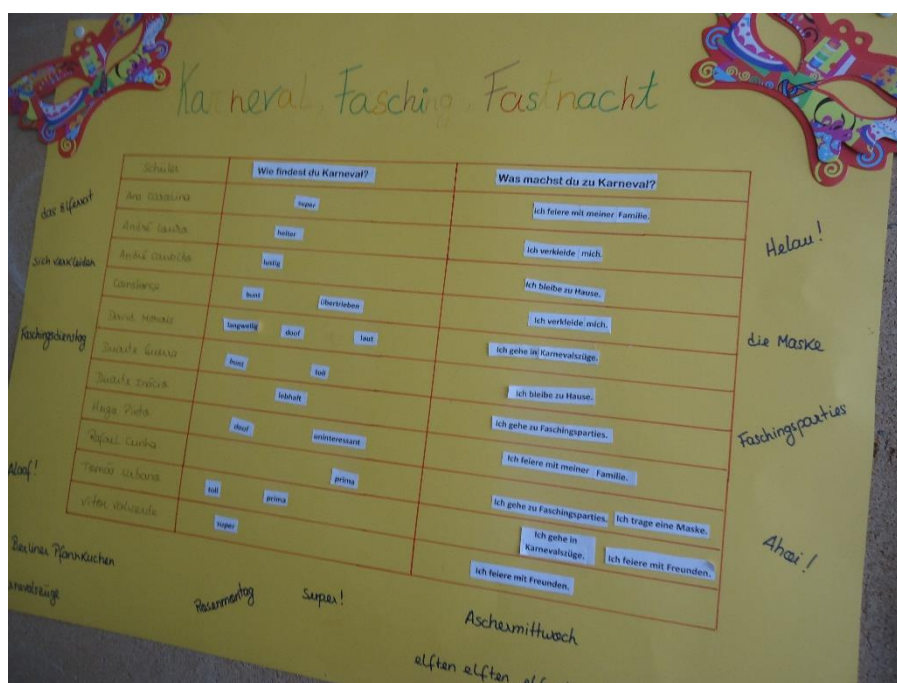 Karneval, Fasching, Fastnacht
Schüler
Wie findest du Karneval?
Was machst du zu Karneval?
Ana Carolina
super
Ich feiere mit meiner Familie.
André
heiter
Ich verkleide mich.
André
lustig
Ich bleibe zu Hause.
Constança
bunt
übertrieben
Ich verkleide mich.
David Morais
langweilig
doof
laut
Ich gehe in Karnevalszüge.
Duarte Guerra
bunt
toll
Ich bleibe zu Hause.
Duarte Inácio
lebhaft
Ich gehe zu Faschingsparties.
Hugo Pinto
doof
uninteressant
Ich feiere mit meiner Familie.
Rafael Cunha
prima
Ich gehe zu Faschingsparties.
Ich trage eine Maske.
Tomás Urbano
toll
prima
Ich gehe in
Karnevalszüge.
Ich feiere mit Freunden.
Vitor
super
Ich feiere mit Freunden.
das Elferrat
sich verkleiden
Faschingsdienstag
Alaaf!
Berliner Pfannkuchen
Rosenmontag
Super!
Aschermittwoch
elften elften
Helau!
die Maske
Faschingsparties
Ahoi!